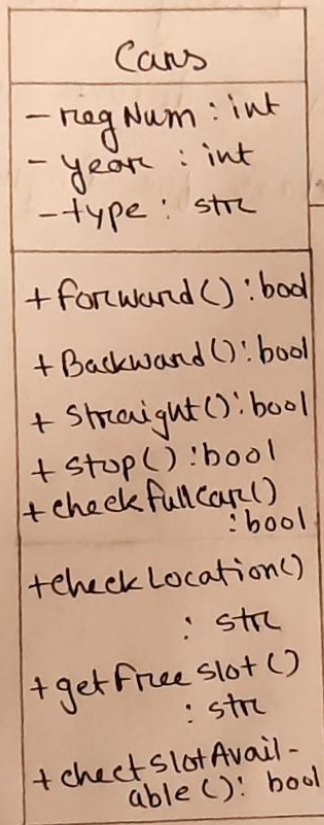 Cars
- regNum : int
- year : int
- type : str
+ forward() : bool
+ Backward() : bool
+ Straight() : bool
+ stop() : bool
+ checkfullCar()
: bool
+ checkLocation()
: str
+ getfree slot()
: str
+ chectslotAvail-
able() : bool